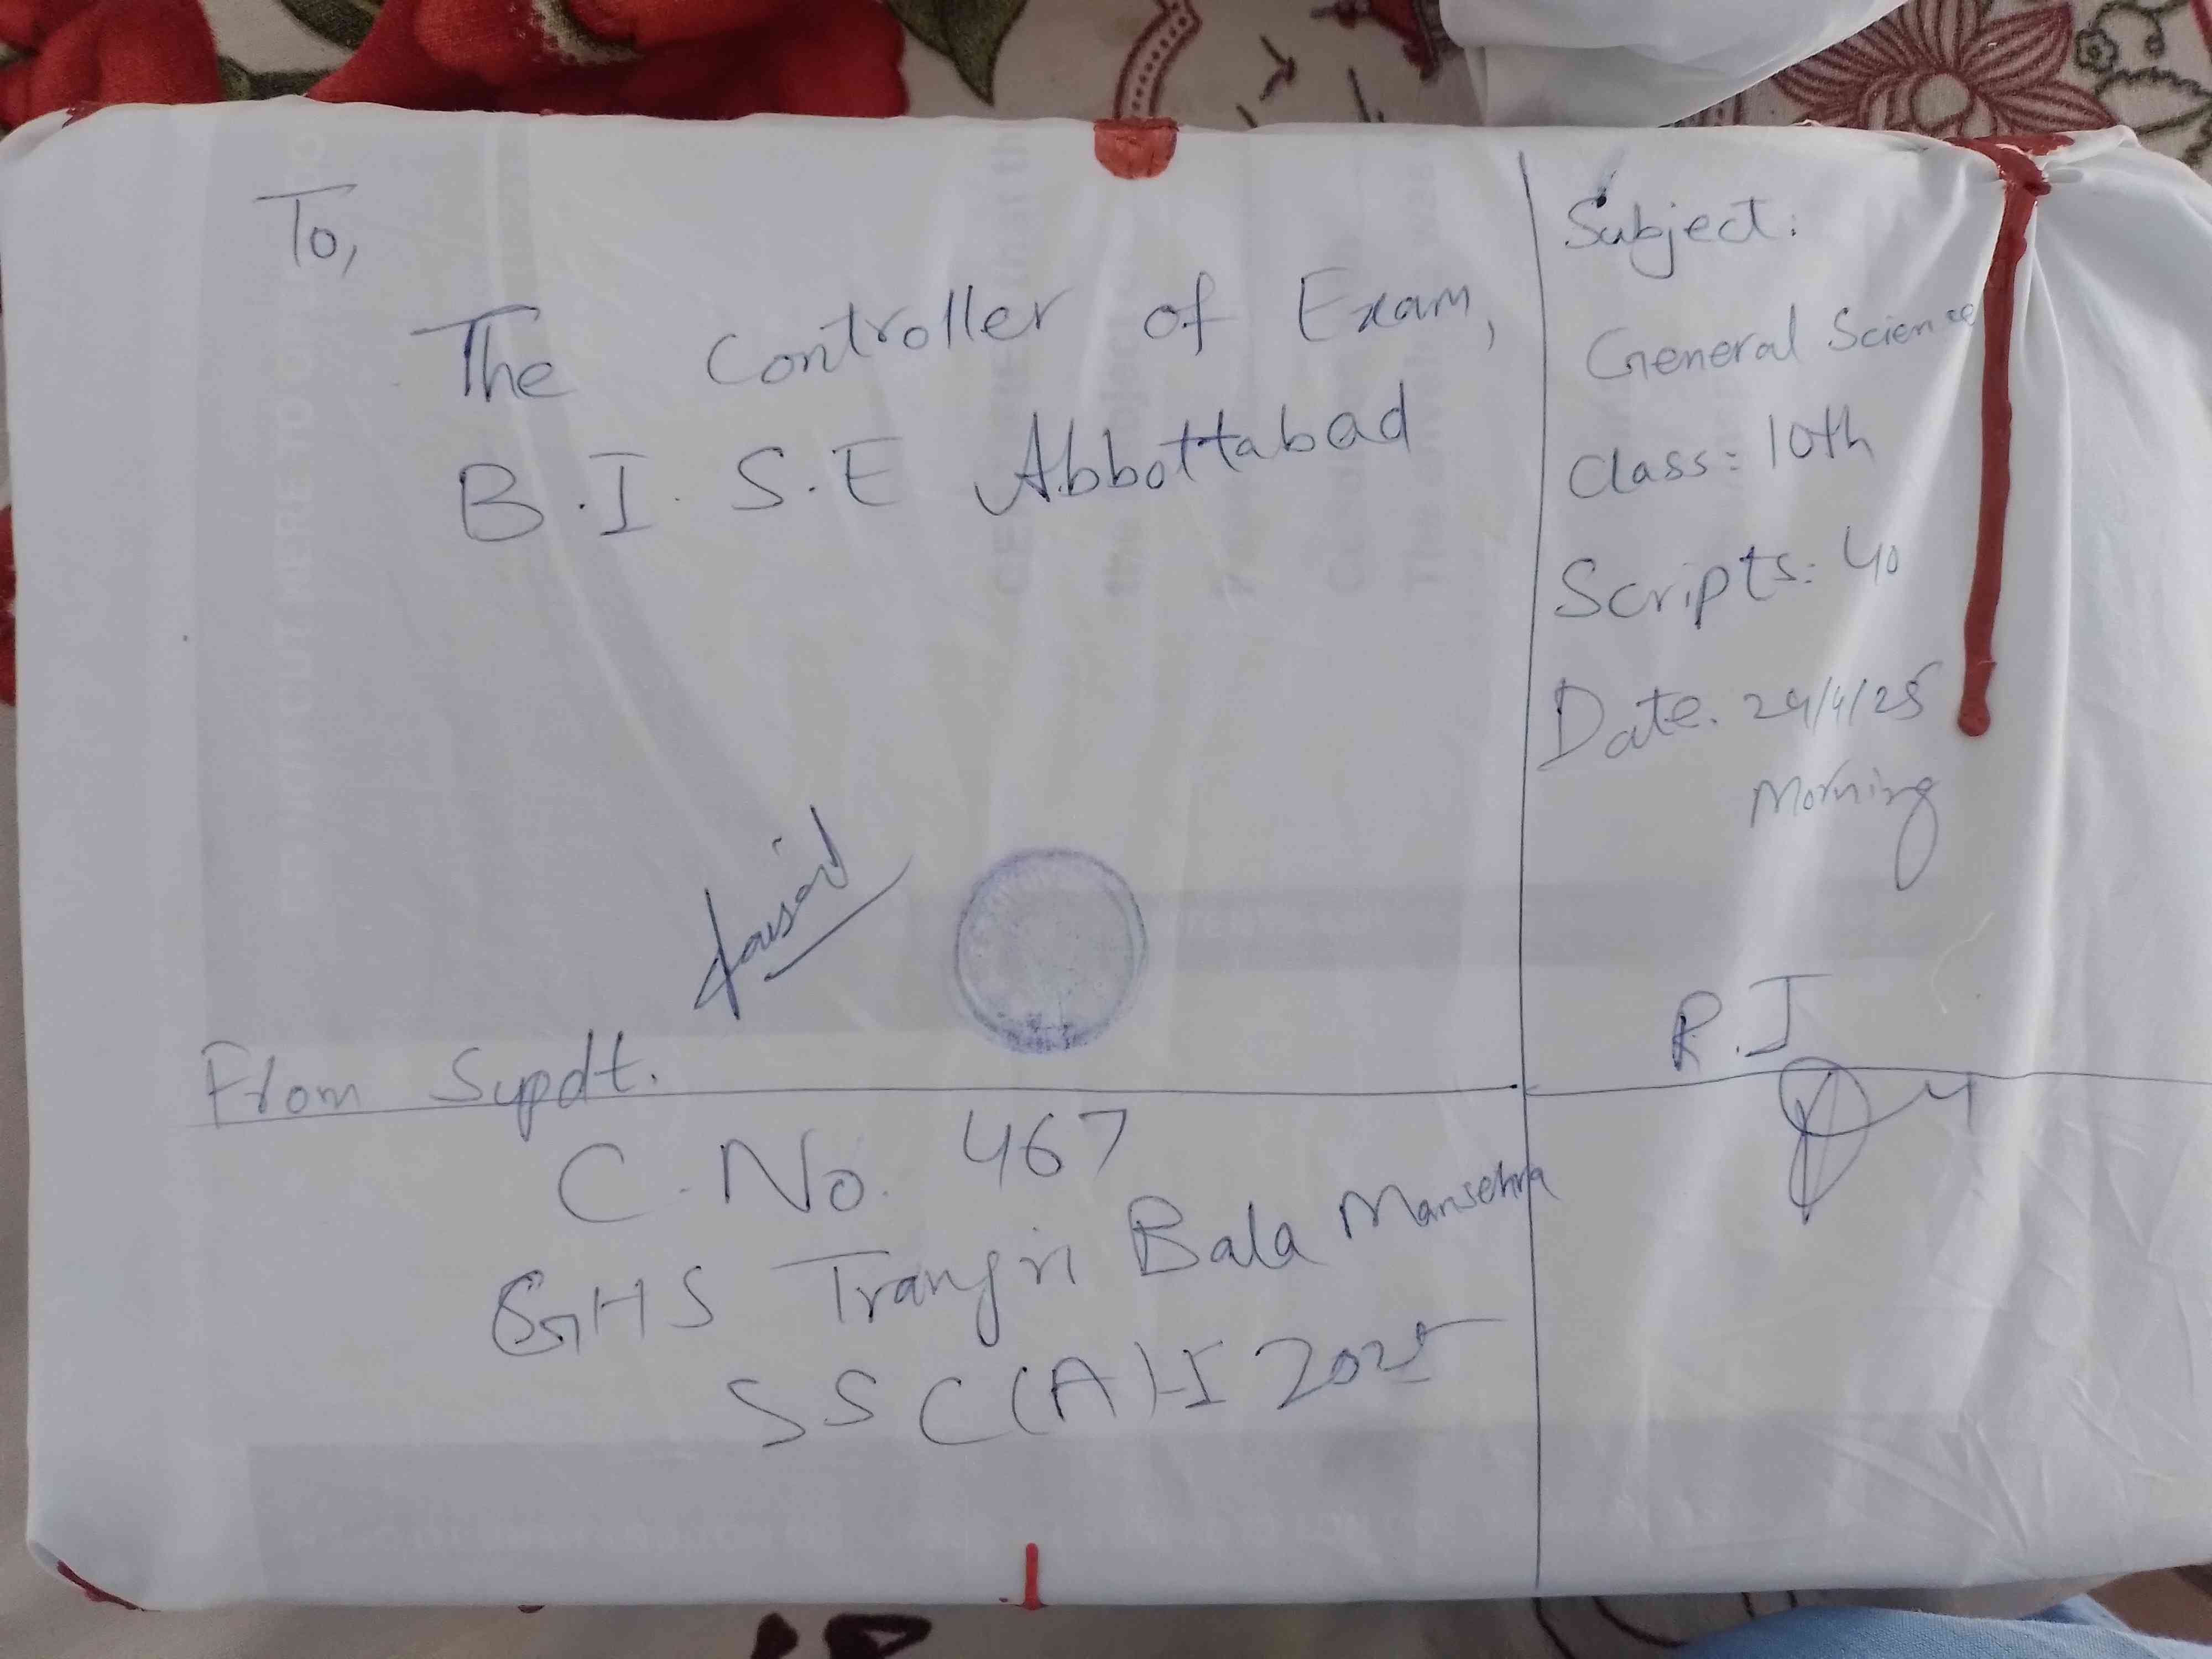 To,
The Controller of Exam,
B.I.S.E Abbottabad
Subject:
General Science
Class: 10th
Scripts: 40
Date. 24/4/25
Morning
R.I
From Supdt.
C.No. 467
GHS Trangri Bala Mansehra
SSC(A)-I 2025